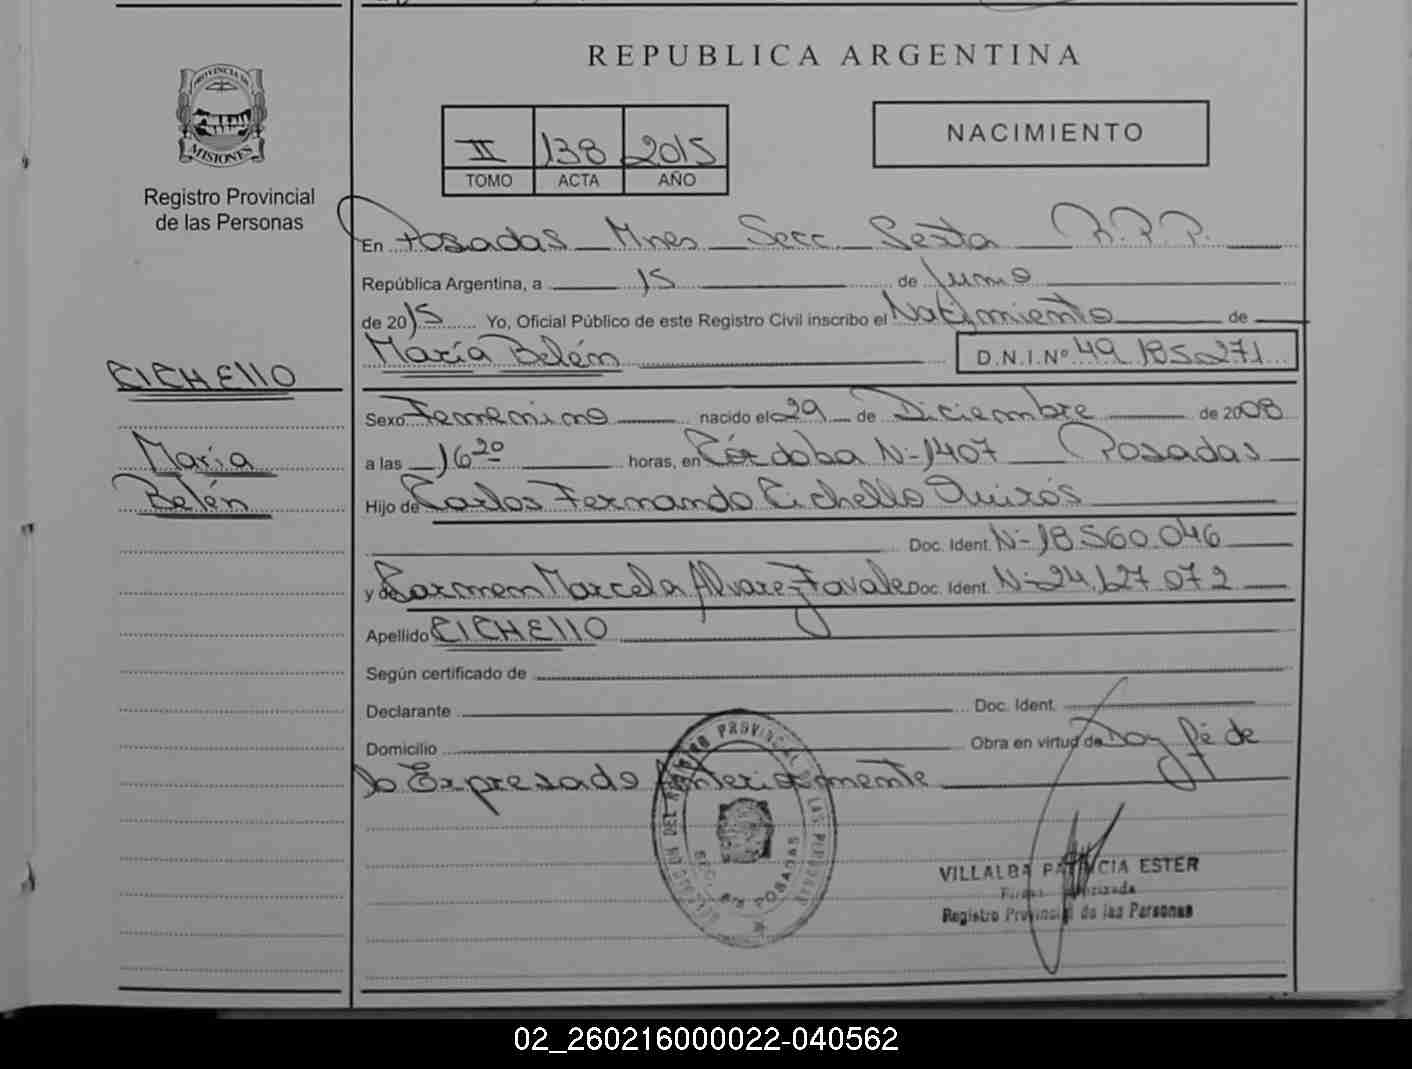 REPUBLICA ARGENTINA
PROVINCIA DE
MISIONES
Registro Provincial
de las Personas
II 138 2015
TOMO ACTA AÑO
NACIMIENTO
En Posadas Mnes Secc. Sexta R.P.P.
República Argentina, a 15 de Junio
de 2015 Yo, Oficial Público de este Registro Civil inscribo el Nacimiento de
María Belén D.N.I.Nº 49.185.271
CICHELLO
María
Belén
Sexo Femenino nacido el 29 de Diciembre de 2008
a las 16 20 horas, en Córdoba N-1407 Posadas
Hijo de Carlos Fernando Cichello Quirós
Doc. Ident. N-18.560.046
y de Carmen Marcela Alvarez Favale Doc. Ident. N-24.627.072
Apellido CICHELLO
Según certificado de
Declarante Doc. Ident.
Domicilio Obra en virtud de Doy fé de
lo Expresado Anteriormente
DEL REGISTRO PROVINCIAL DE LAS PERSONAS
SECC. 6ta POSADAS
VILLALBA PATRICIA ESTER
Firma Autorizada
Registro Provincial de las Personas
02_260216000022-040562